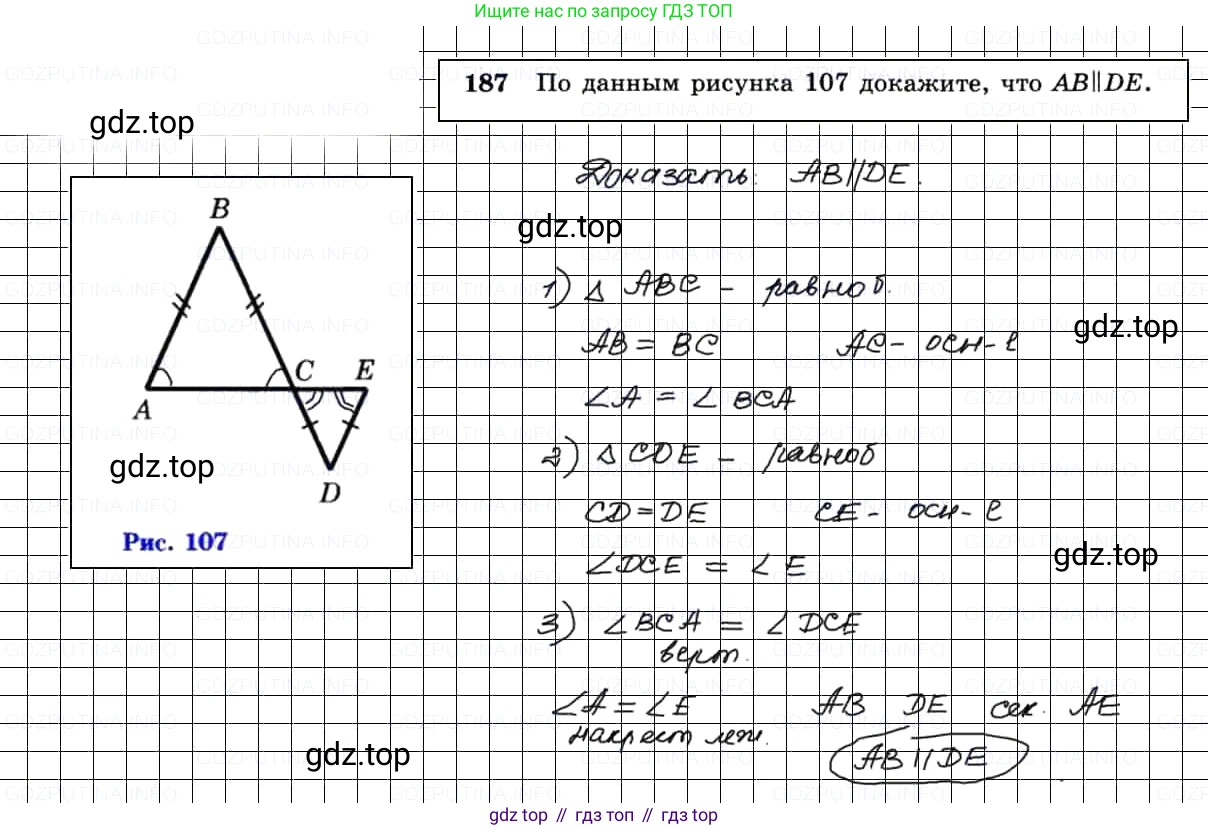 Ищите нас по запросу ГДЗ ТОП
187 По данным рисунка 107 докажите, что AB∥DE.
gdz.top
Доказать: AB∥DE.
gdz.top
B
1) △ ABC – равноб.
AB = BC AC – осн-е
gdz.top
C E
∠A = ∠BCA
A
2) △ CDE – равноб
gdz.top
D
CD = DE CE – осн-е
Рис. 107
∠DCE = ∠E
gdz.top
3) ∠BCA = ∠DCE
верт.
∠A = ∠E AB DE сек. AE
накрест леж.
AB∥DE
gdz.top
gdz.top // гдз топ // gdz top